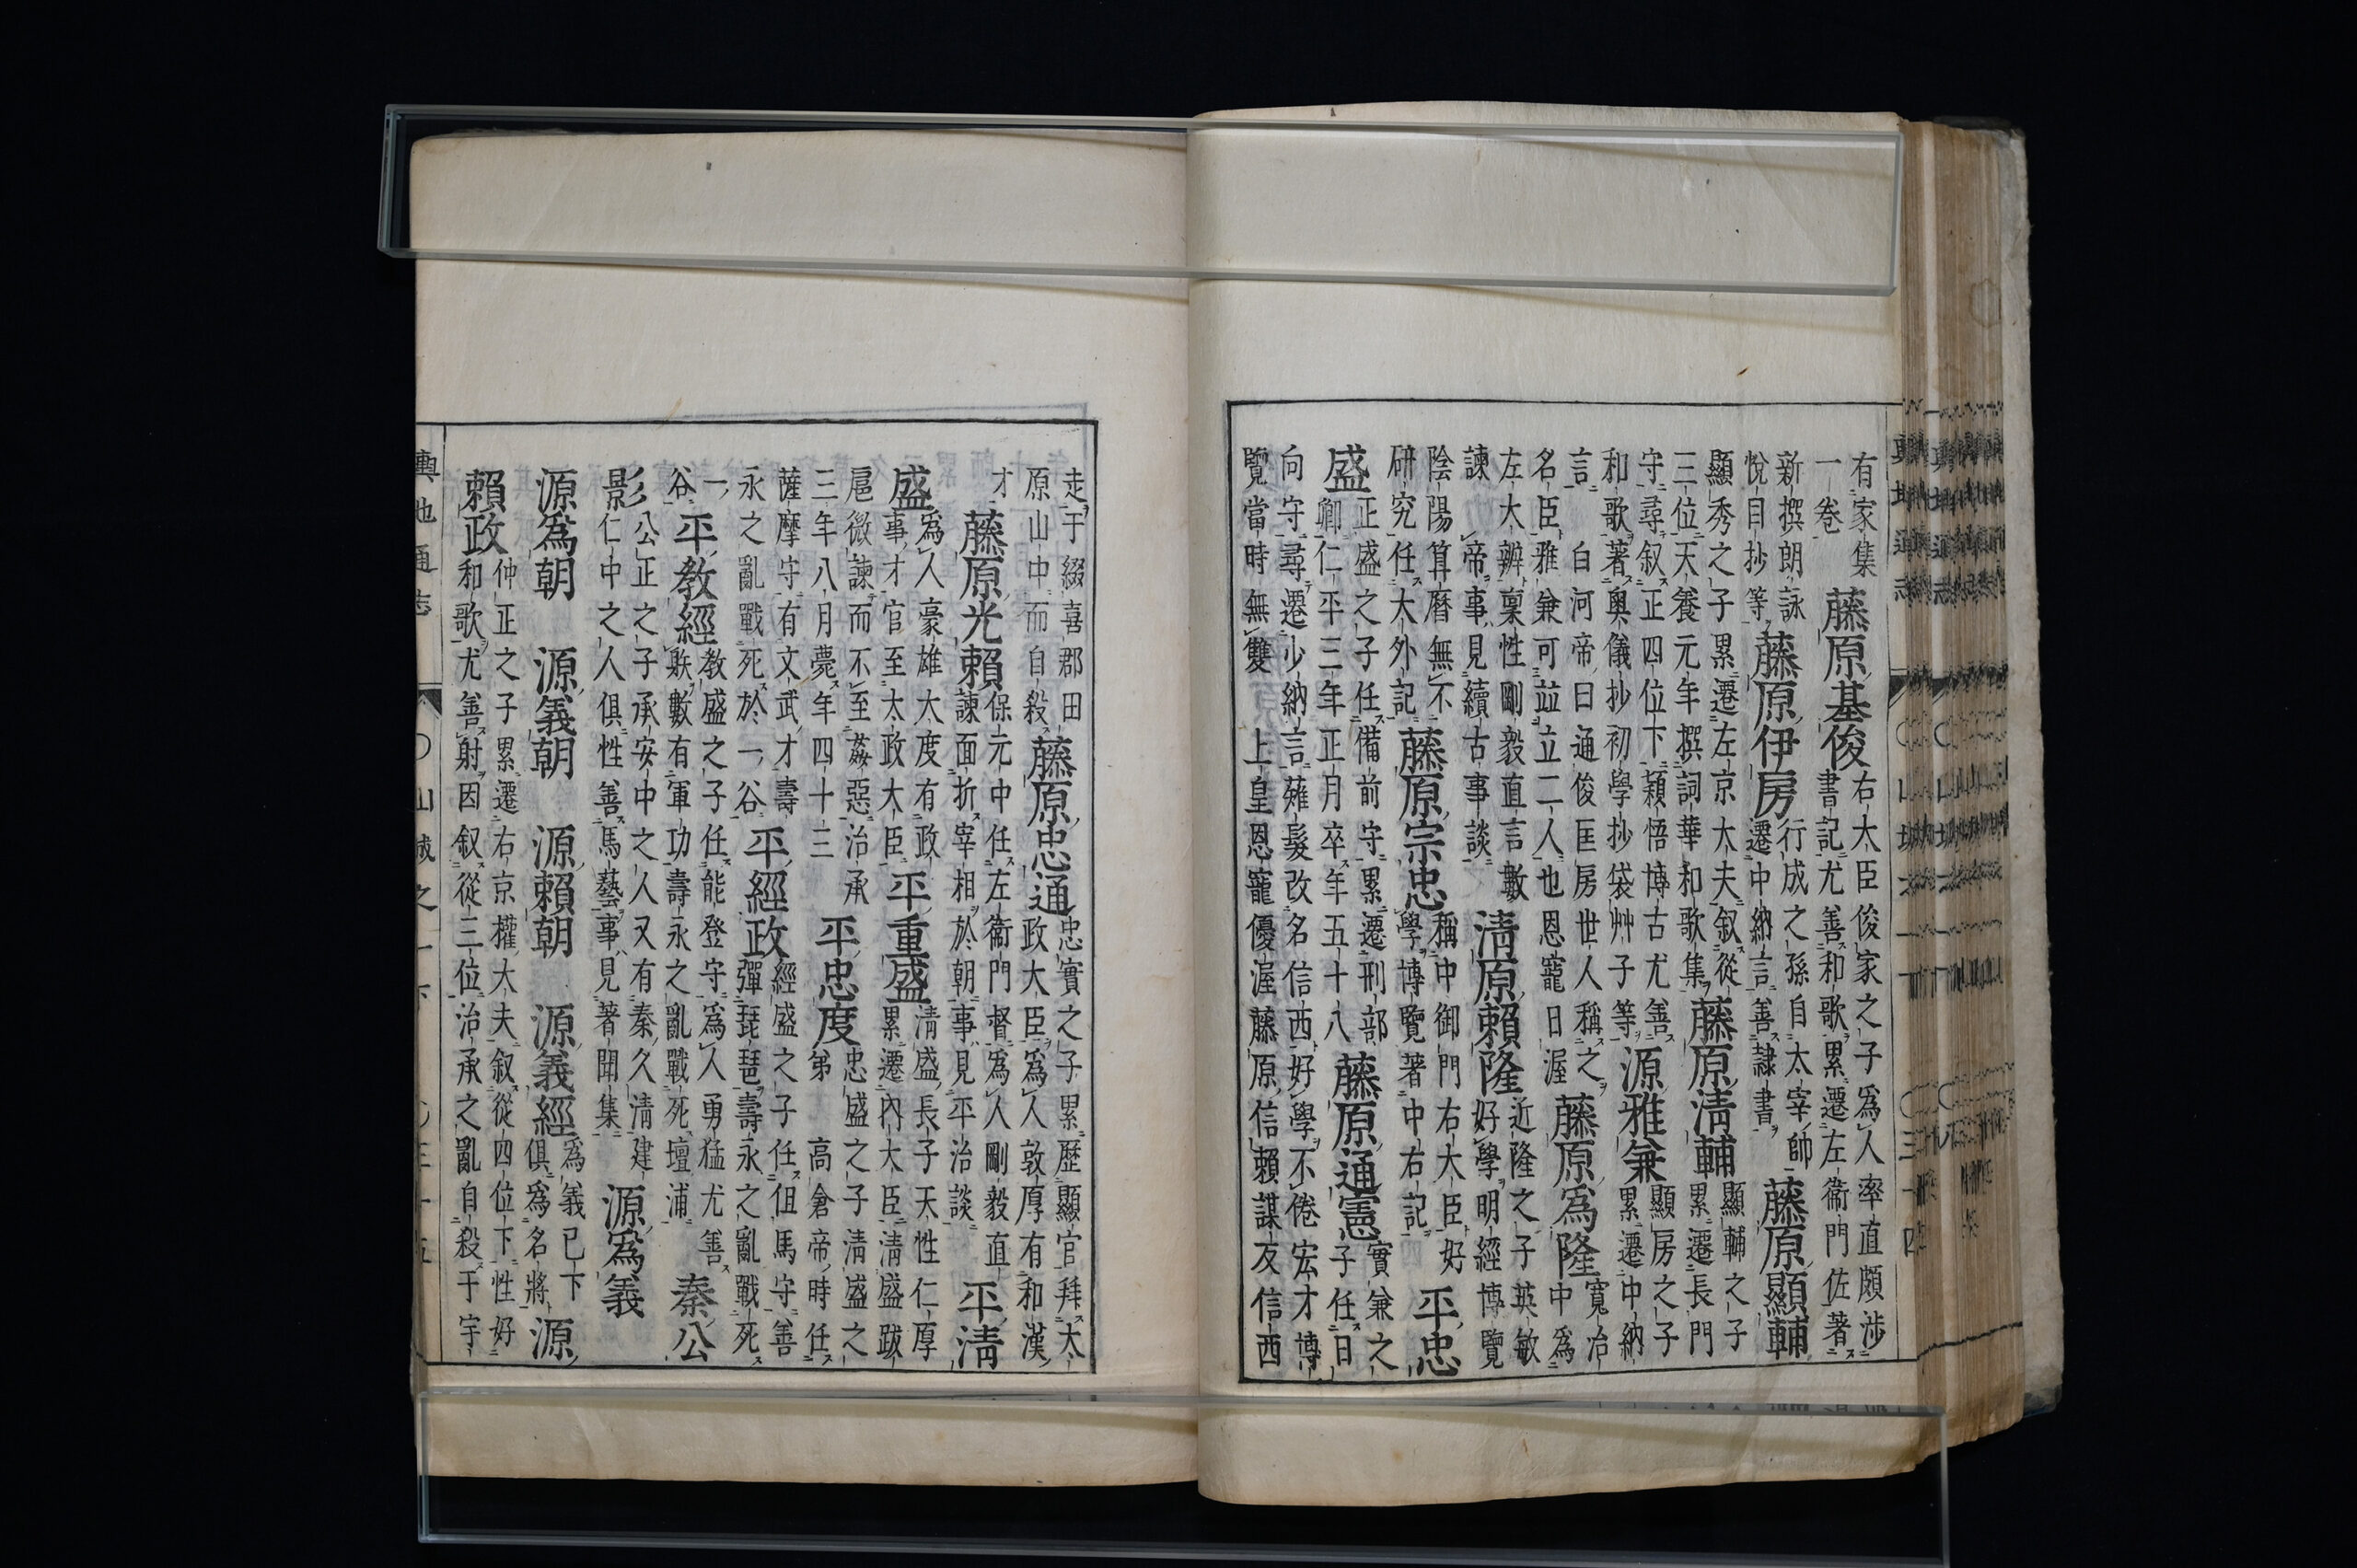 有家集
一卷
藤原基俊
右大臣俊家之子爲人率直頗渉
書記尤善和歌累遷左衞門佐著
新撰朗詠
悅目抄等
藤原伊房
行成之孫自太宰帥
遷中納言善隷書
藤原顯輔
顯秀之子累遷左京大夫叙從
三位天養元年撰詞華和歌集
藤原清輔
顯輔之子
累遷長門
守尋叙正四位下穎悟博古尤善
和歌著奧儀抄初學抄袋艸子等
源雅兼
顯房之子
累遷中納
言　白河帝曰通俊匡房世人稱之
名臣雅兼可竝立二人也恩寵日渥
藤原爲隆
寬治
中爲
左大辨禀性剛毅直言數
諫　帝事見續古事談
清原賴隆
近隆之子英敏
好學明經博覽
陰陽算曆無不
研究任大外記
藤原宗忠
稱中御門右大臣好
學博覽著中右記
平忠
盛
正盛之子任備前守累遷刑部
卿仁平三年正月卒年五十八
藤原通憲
實兼之
子任日
向守尋遷少納言薙髮改名信西好學不倦宏才博
覽當時無雙　上皇恩寵優渥藤原信賴謀友信西
走于綴喜郡田
原山中而自殺
藤原忠通
忠實之子累歷顯官拜太
政大臣爲人敦厚有和漢
才
藤原光賴
保元中任左衞門督爲人剛毅直
諫面折宰相於朝事見平治談
平清
盛
爲人豪雄大度有政
事才官至太政大臣
平重盛
清盛長子天性仁厚
累遷內大臣清盛跋
扈微諫而不至姦惡治承
三年八月薨年四十三
平忠度
忠盛之子清盛之
弟　高倉帝時任
薩摩守有文武才壽
永之亂戰死於一谷
平經政
經盛之子任但馬守善
彈琵琶壽永之亂戰死
一
谷
平教經
教盛之子任能登守爲人勇猛尤善
數有軍功壽永之亂戰死壇浦
秦公
影
公正之子承安中之人又有秦久清建
仁中之人俱性善馬藝事見著聞集
源爲義
源爲朝　源義朝　源賴朝　源義經
爲義已下
俱爲名將
源
賴政
仲正之子累遷右京權大夫叙從四位下性好
和歌尤善射因叙從三位治承之亂自殺于宇
輿地通志　山城之一下